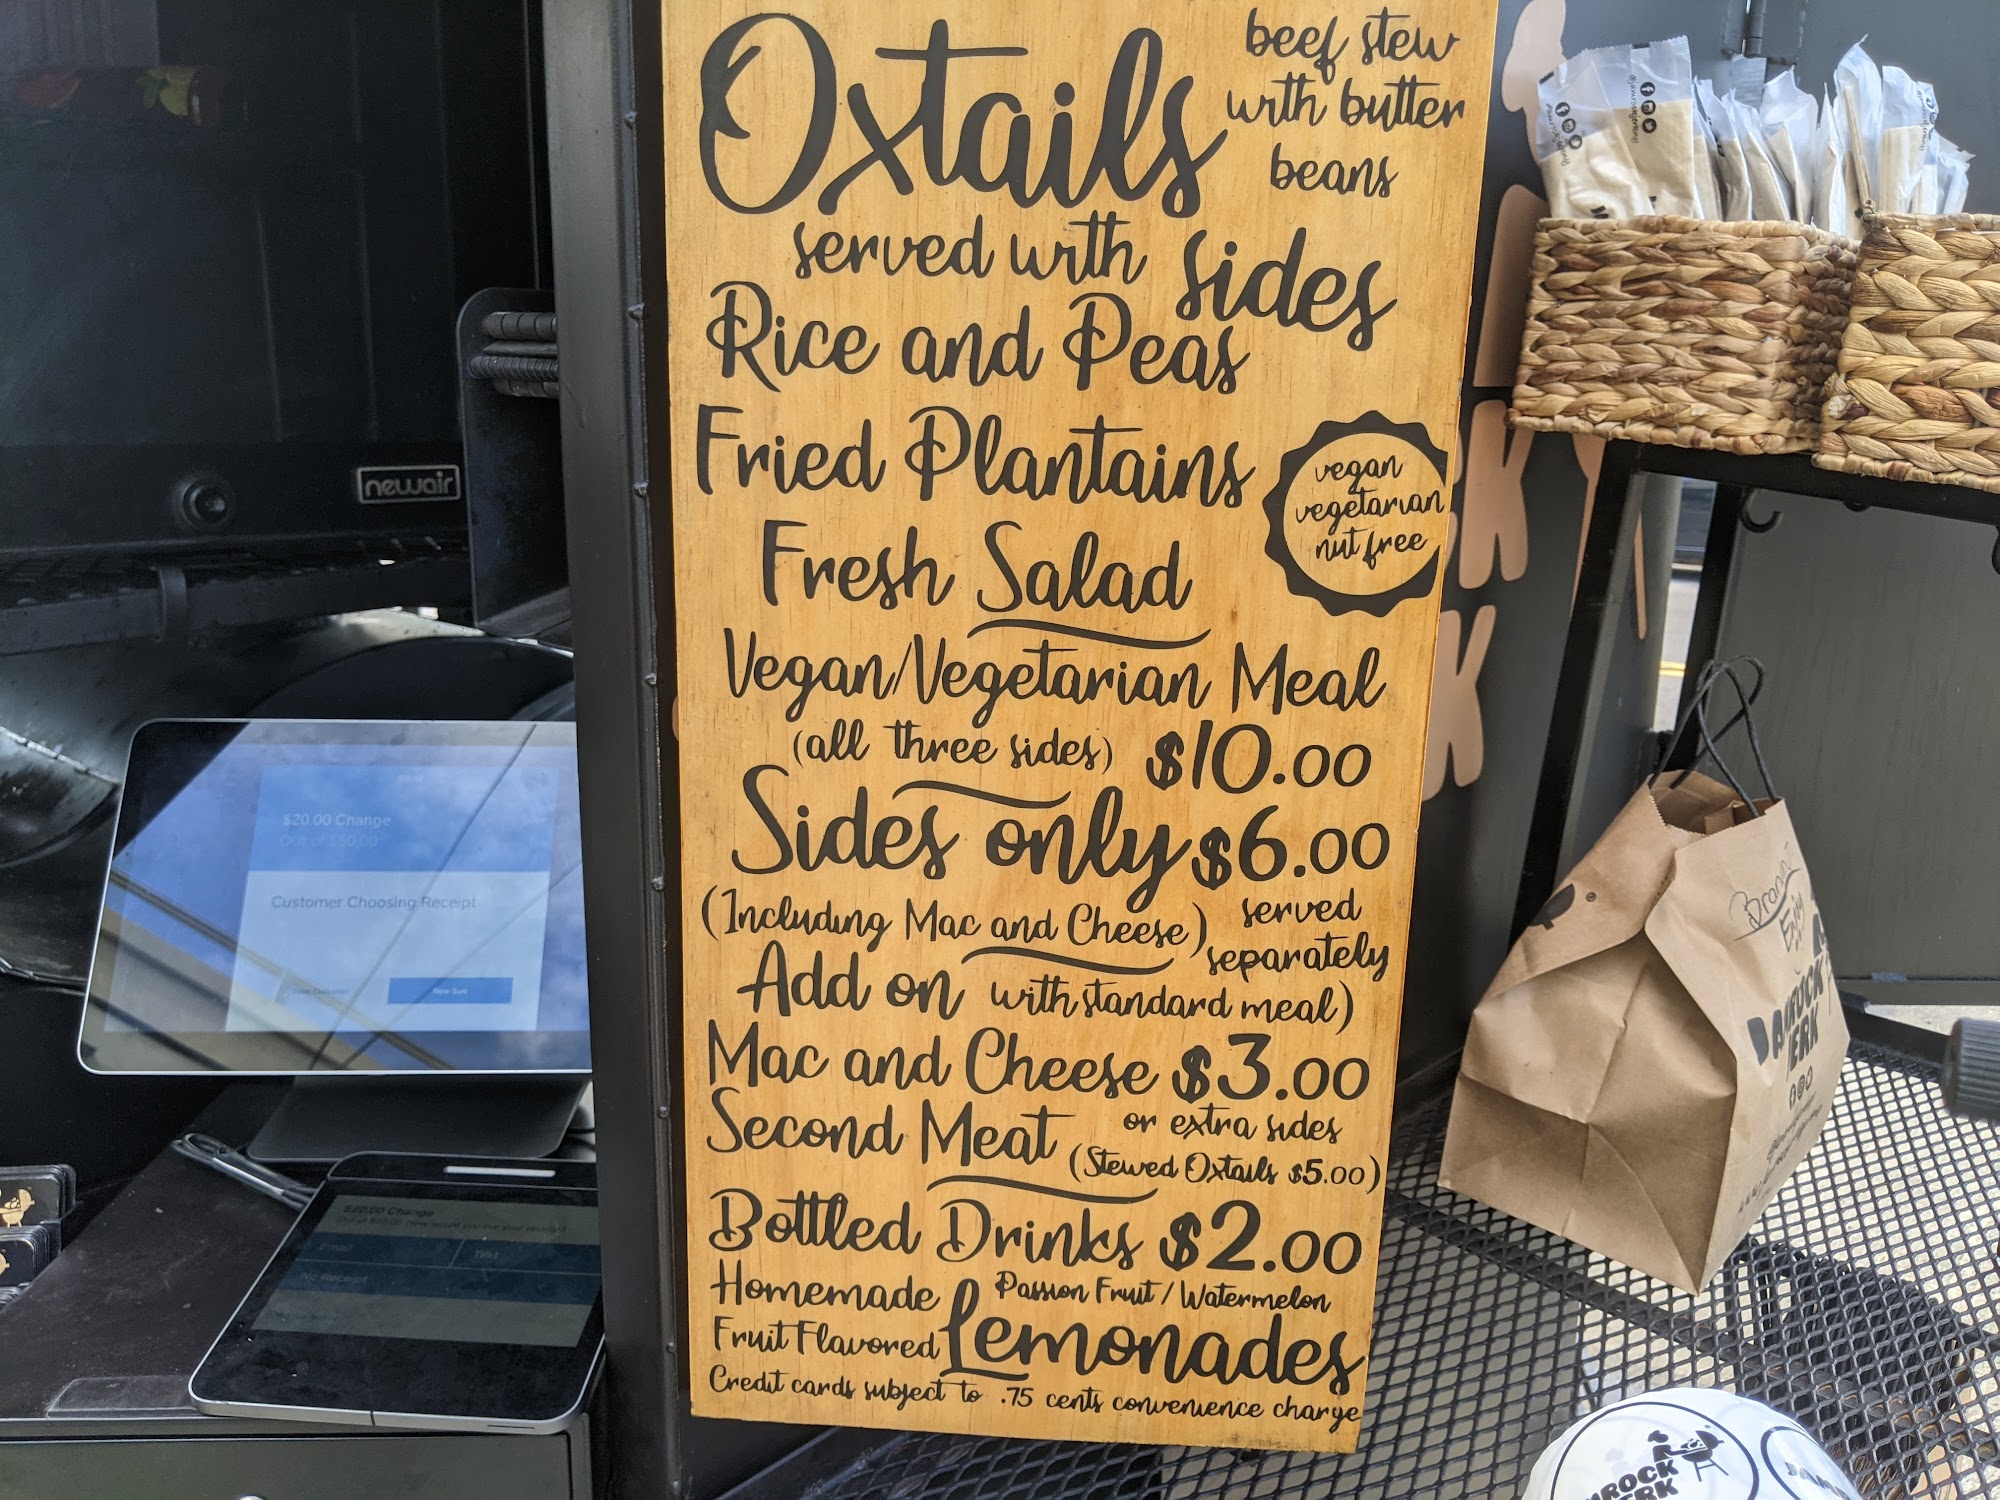 Oxtails
beef stew
with butter
beans
served with sides
Rice and Peas
Fried Plantains
vegan
vegetarian
nut free
Fresh Salad
Vegan/Vegetarian Meal
(all three sides) $10.00
Sides only $6.00
(Including Mac and Cheese) served
separately
Add on with standard meal)
Mac and Cheese $3.00
Second Meat or extra sides
(Stewed Oxtails $5.00)
Bottled Drinks $2.00
Homemade Passion Fruit / Watermelon
Fruit Flavored Lemonades
Credit cards subject to .75 cents convenience charge
newair
$20.00 Change
Out of $50.00
Customer Choosing Receipt
New Sale
$20.00 Change
Email Text
No Receipt
Enjoy
JERK